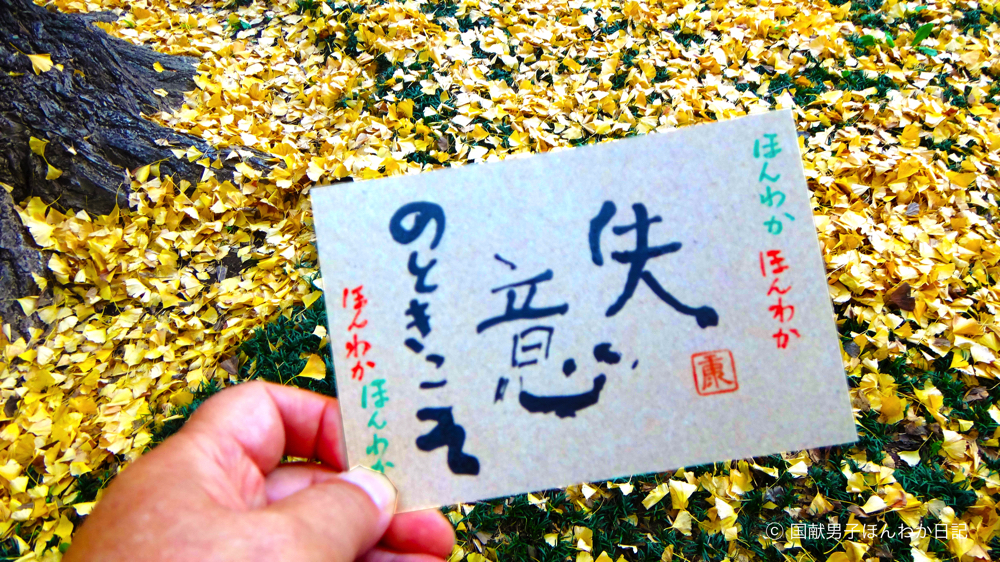 ほんわか ほんわか
失
意
のときこそ
ほんわか ほんわか
康
© 国献男子ほんわか日記